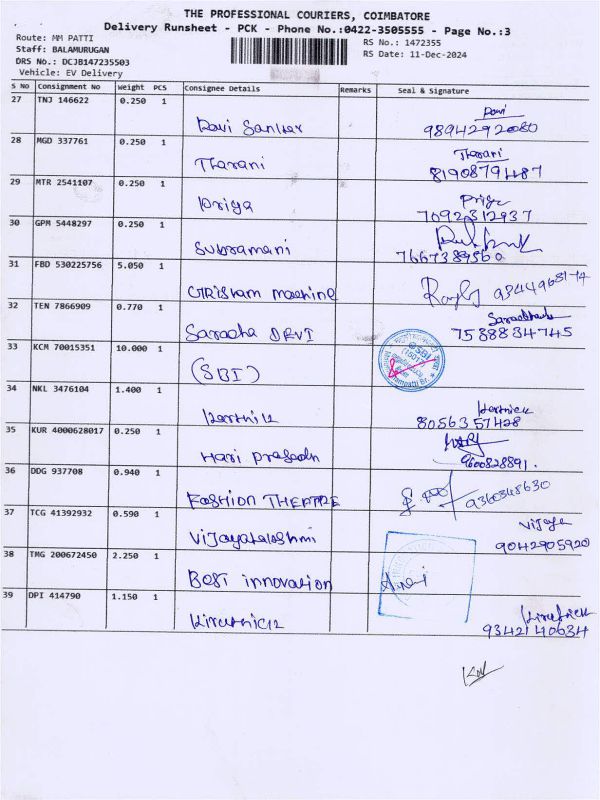 THE PROFESSIONAL COURIERS, COIMBATORE
Delivery Runsheet - PCK - Phone No.:0422-3505555 - Page No.:3
Route: MM PATTI
RS No.: 1472355
Staff: BALAMURUGAN
RS Date: 11-Dec-2024
DRS No.: DCJB147235503
Vehicle: EV Delivery
S No Consignment No Weight PCS Consignee Details Remarks Seal & Signature
27 TNJ 146622 0.250 1 Ravi Sanker Ravi
28 MGD 337761 0.250 1 Tharani Tharani
29 MTR 2541107 0.250 1 Priya Priya
7092312937
30 GPM 5448297 0.250 1 Subramani
7667389560
31 FBD 530225756 5.050 1
32 TEN 7866909 0.770 1 Saradha DEVI
7588834745
33 KCM 70015351 10.000 1 (SBI)
34 NKL 3476104 1.400 1 Karthik
8056357428
35 KUR 4000628017 0.250 1 Hari prasadh
9600828891.
36 DDG 937708 0.940 1 FASHION THEATRE
9360348630
37 TCG 41392932 0.590 1 Vijayalakshmi
9042905920
38 TMG 200672450 2.250 1 Best innovation
39 DPI 414790 1.150 1 Kiruthick
9342140634